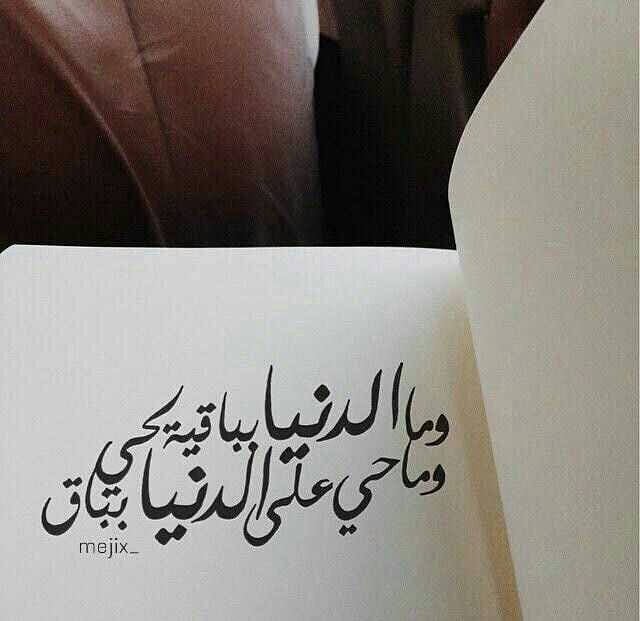 وما الدنيا بباقية بحي
وما حي على الدنيا بباق
mejix_